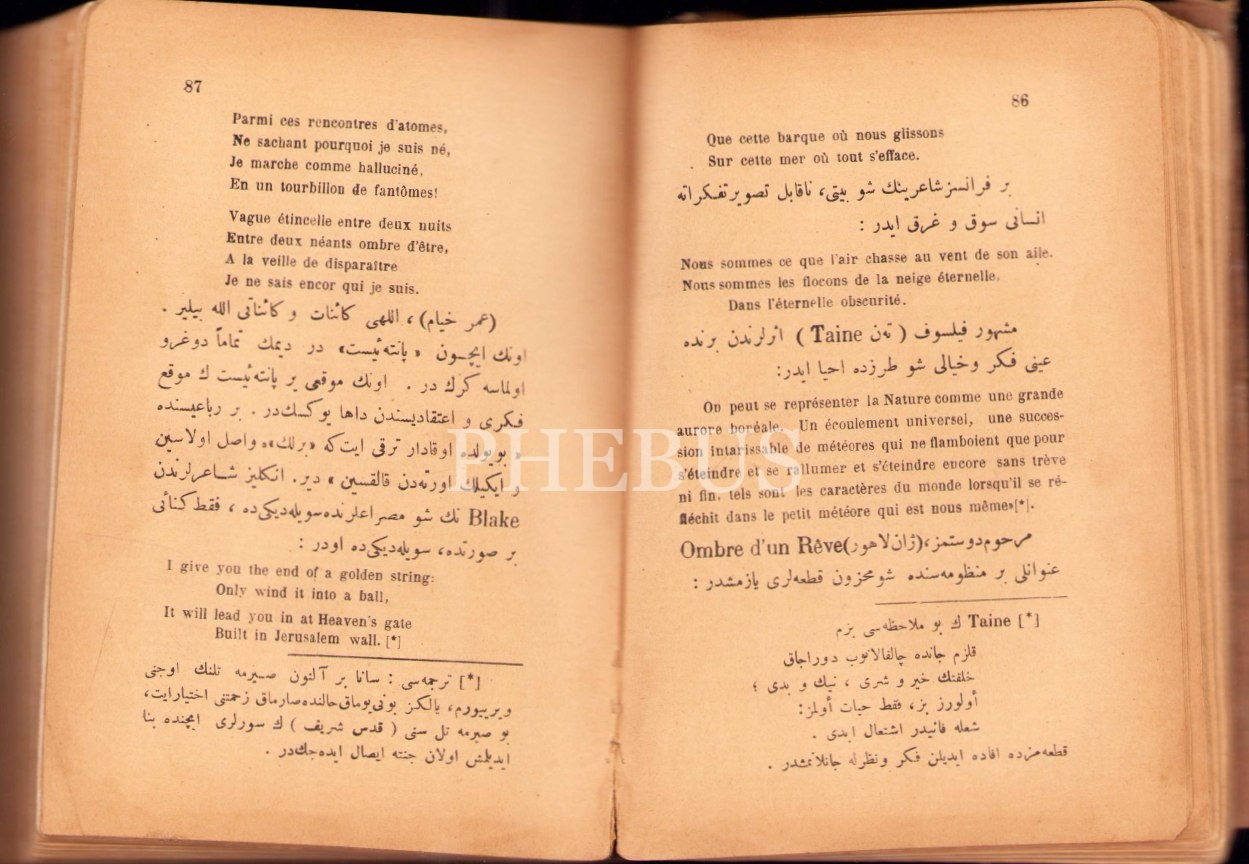 86
Que cette barque où nous glissons
Sur cette mer où tout s'efface.
بر فرانسز شاعرینك شو بیتی، ناقابل تصویر تفکراته
انسانی سوق و غرق ایدر :
Nous sommes ce que l'air chasse au vent de son aile.
Nous sommes les flocons de la neige éternelle,
Dans l'éternelle obscurité.
مشهور فیلسوف ( تەن Taine ) اثرلرندن برنده
عینی فکر وخیالی شو طرزده احیا ایدر:
On peut se représenter la Nature comme une grande
aurore boréale. Un écoulement universel, une succes-
sion intarissable de météores qui ne flamboient que pour
s'éteindre et se rallumer et s'éteindre encore sans trève
ni fin, tels sont les caractères du monde lorsqu'il se ré-
fléchit dans le petit météore qui est nous même»[*].
مرحوم دوستمز،(ژان لاهور)Ombre d'un Rêve
عنوانلی بر منظومه‌سنده شو محزون قطعه‌لری یازمشدر :
[*] Taine ك بو ملاحظه‌سی بزم
قلزم جانده چالقالانوب دوراجاق
خلقتك خیر و شری ، نیك و بدی ؛
أولورز بز، فقط حیات أولمز:
شعله فانیدر اشتعال ابدی .
قطعه‌مزده افاده ایدیلن فکر ونظرله جانلانمشدر .
87
Parmi ces rencontres d'atomes,
Ne sachant pourquoi je suis né,
Je marche comme halluciné,
En un tourbillon de fantômes!
Vague étincelle entre deux nuits
Entre deux néants ombre d'être,
A la veille de disparaître
Je ne sais encor qui je suis.
(عمر خیام) ، اللهی کائنات و کائناتی الله بیلیر .
اونك ایچـون « پانته‌ئیست» در دیمك تماماً دوغرو
اولماسه کرك در . اونك موقعی بر پانته‌ئیست ك موقع
فکری و اعتقادیسندن داها یوکسك‌در . بر رباعیسنده
« بو یولده اوقادار ترقی ایت که «برلك»ه واصل اولاسین
و ایکیلك اورته‌دن قالقسین » دیر. انکلیز شاعرلرندن
Blake نك شو مصراعلرنده سویله‌دیکی‌ده ، فقط کنائی
بر صورتده، سویله‌دیکی‌ده اودر :
I give you the end of a golden string:
Only wind it into a ball,
It will lead you in at Heaven's gate
Built in Jerusalem wall. [*]
[*] ترجمه‌سی : سانا بر آلتون صیرمه تلنك اوجنی
ویرییورم، یالکز بونی یوماق حالنده صارماق زحمتنی اختیار ایت،
بو صیرمه تل سنی ( قدس شریف ) ك سورلری ایچنده بنا
ایدیلمش اولان جنته ایصال ایده‌جك‌در .
PHEBUS